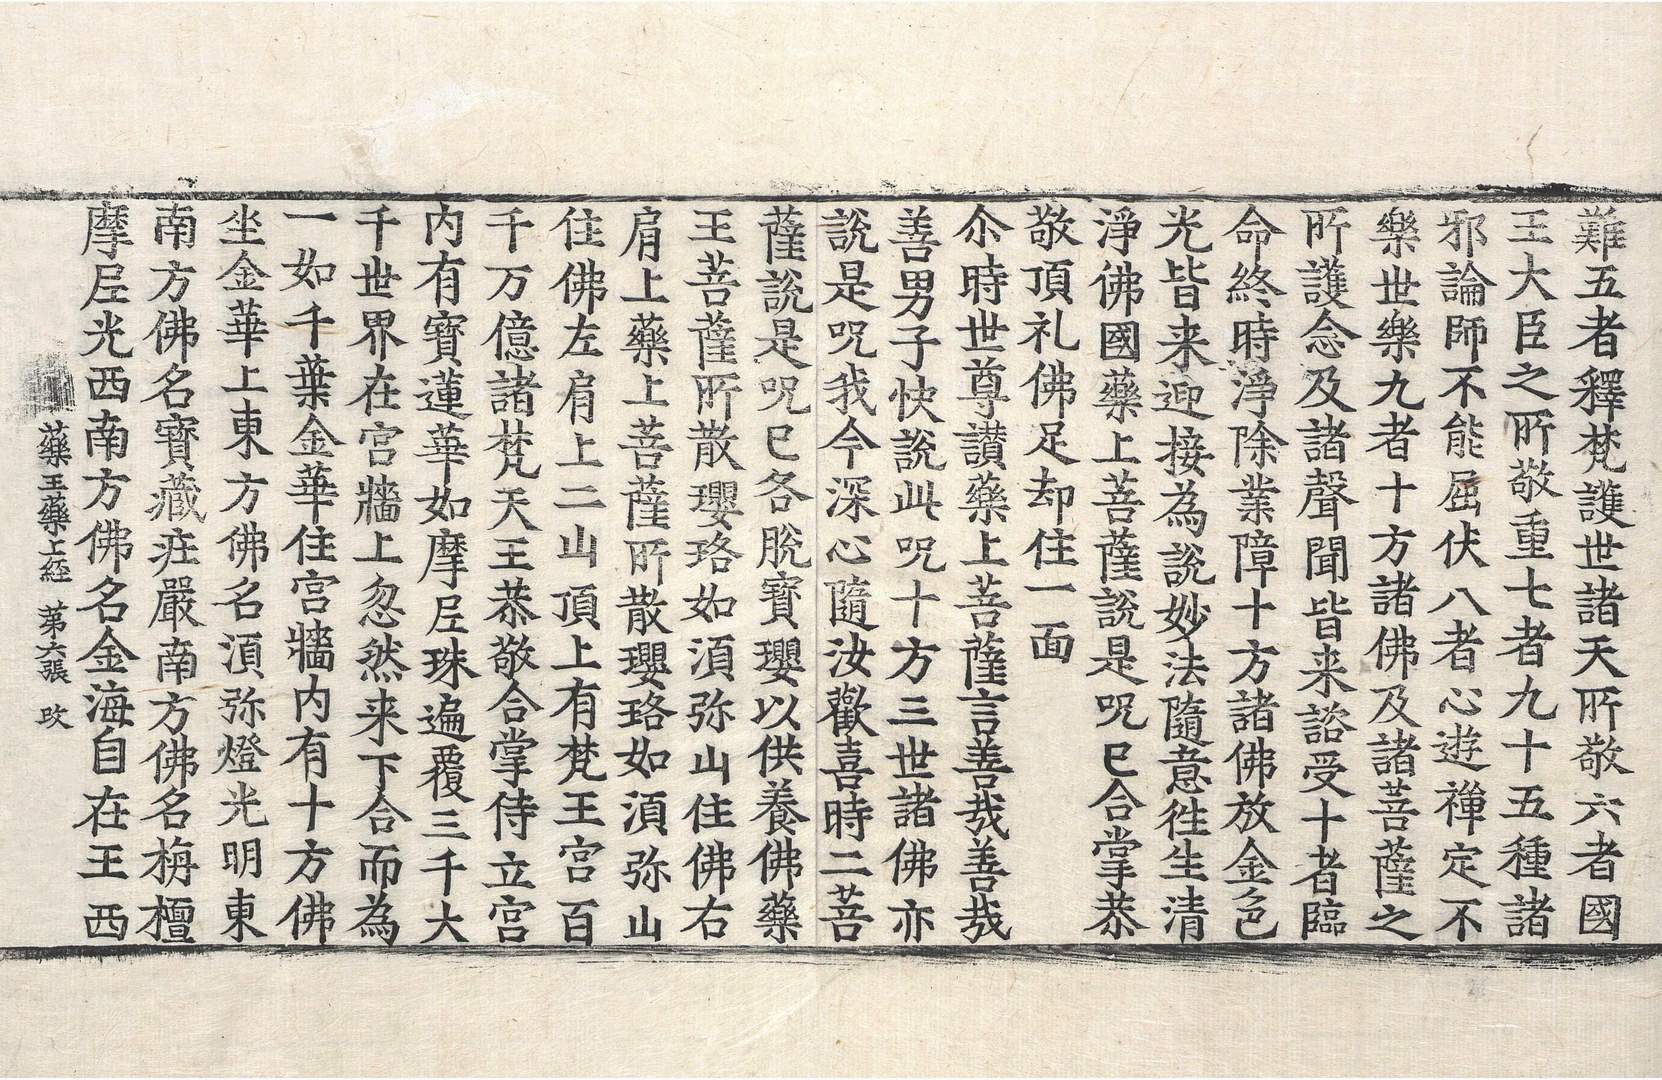 難五者釋梵護世諸天所敬六者國
王大臣之所敬重七者九十五種諸
邪論師不能屈伏八者心遊禪定不
樂世樂九者十方諸佛及諸菩薩之
所護念及諸聲聞皆来諮受十者臨
命終時淨除業障十方諸佛放金色
光皆来迎接為說妙法隨意徃生清
淨佛國藥上菩薩說是呪已合掌恭
敬頂礼佛足却住一面
尒時世尊讃藥上菩薩言善哉善哉
善男子快說此呪十方三世諸佛亦
說是呪我今深心隨汝歡喜時二菩
薩說是呪已各脫寶瓔以供養佛藥
王菩薩所散瓔珞如湏弥山住佛右
肩上藥上菩薩所散瓔珞如湏弥山
住佛左肩上二山頂上有梵王宮百
千万億諸梵天王恭敬合掌侍立宮
内有寶蓮華如摩尼珠遍覆三千大
千世界在宮牆上忽然来下合而為
一如千葉金華住宮牆内有十方佛
坐金華上東方佛名湏弥燈光明東
南方佛名寶藏疘嚴南方佛名栴檀
摩尼光西南方佛名金海自在王西
藥王藥上経 苐六張 改